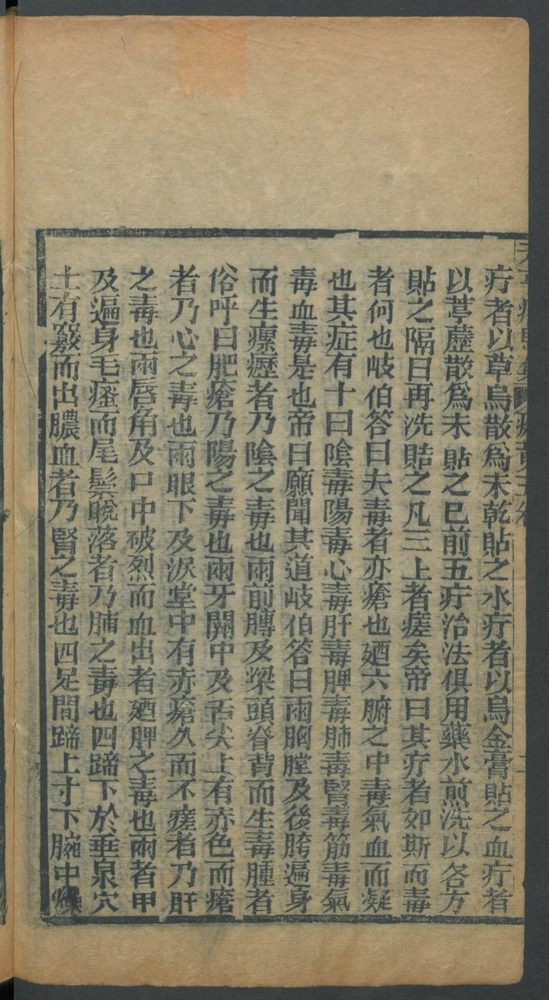 疔者以草烏散為末乾貼之水疔者以烏金膏貼之血疔者
以葶藶散為末貼之已前五疔治法俱用藥水煎洗以各方
貼之隔日再洗貼之凡三上者瘥矣帝曰其疔者如斯而毒
者何也岐伯答曰夫毒者亦瘡也廼六腑之中毒氣血而凝
也其症有十曰陰毒陽毒心毒肝毒脾毒肺毒腎毒筋毒氣
毒血毒是也帝曰願聞其道岐伯答曰兩胸膛及後胯遍身
而生瘰癧者乃陰之毒也兩前膊及梁頭脊背而生毒腫者
俗呼曰肥瘡乃陽之毒也兩牙關中及舌尖上有赤色而瘡
者乃心之毒也兩眼下及淚堂中有赤瘡久而不瘥者乃肝
之毒也兩唇角及口中破烈而血出者廼脾之毒也兩者甲
及遍身毛瘙而尾鬃脫落者乃肺之毒也四蹄下於垂泉穴
上有竅而出膿血者乃腎之毒也四足間蹄上寸下腕中燥